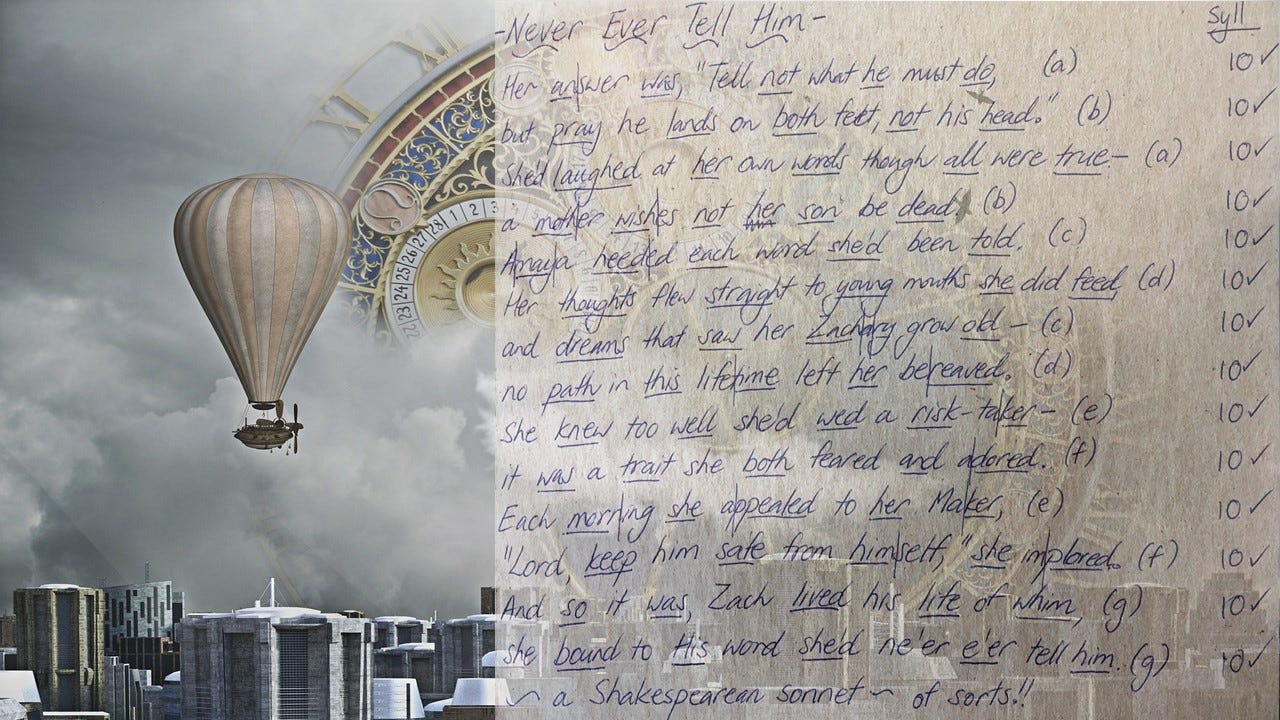 -Never Ever Tell Him-
Syll
Her answer was, "Tell not what he must do, (a) 10✓
but pray he lands on both feet, not his head." (b) 10✓
she'd laughed at her own words though all were true- (a) 10✓
a mother wishes not her son be dead. (b) 10✓
Amaya heeded each word she'd been told. (c) 10✓
Her thoughts flew straight to young mouths she did feed, (d) 10✓
and dreams that saw her Zachary grow old - (c) 10✓
no path in this lifetime left her bereaved. (d) 10✓
She knew too well she'd wed a risk-taker- (e) 10✓
it was a trait she both feared and adored. (f) 10✓
Each morning she appealed to her Maker, (e) 10✓
"Lord, keep him safe from himself," she implored. (f) 10✓
And so it was, Zach lived his life of whim, (g) 10✓
she bound to His word she'd ne'er e'er tell him. (g) 10✓
~ a Shakespearean sonnet ~ of sorts!!
XII
1 2 3 4
28
27
26
25
24
23
22